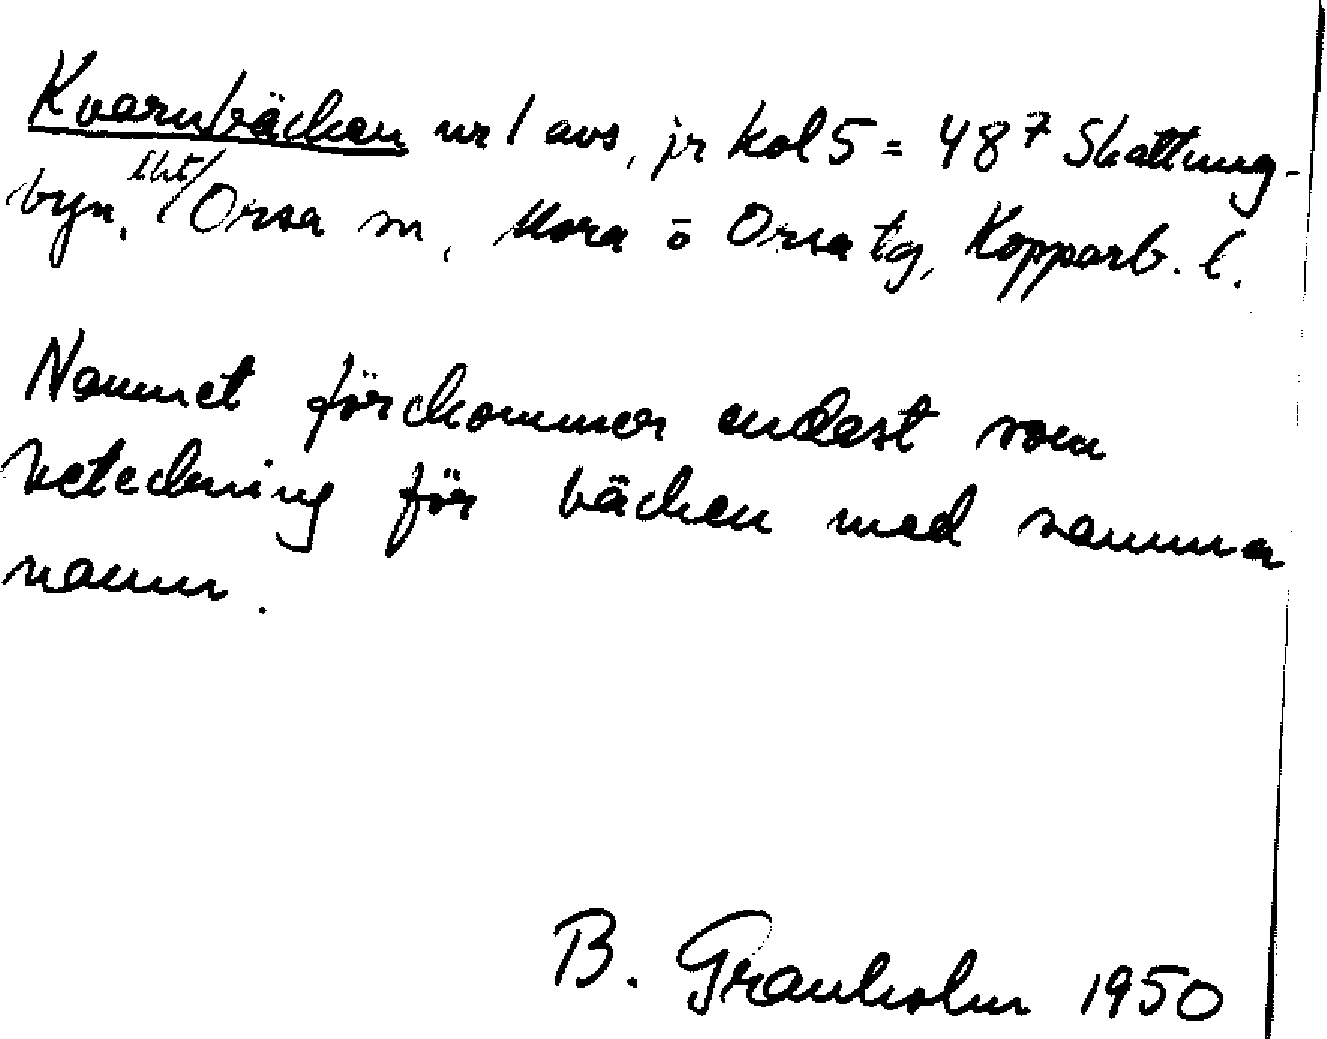 Kvarnbäcken nr 1 avs, jr kol 5 = 48⁷ Skattung-
byn, lht/ Orsa sn, Mora o Orsa tg, Kopparb. l.
Namnet förekommer endast som
beteckning för bäcken med samma
namn.
B. Granholm 1950